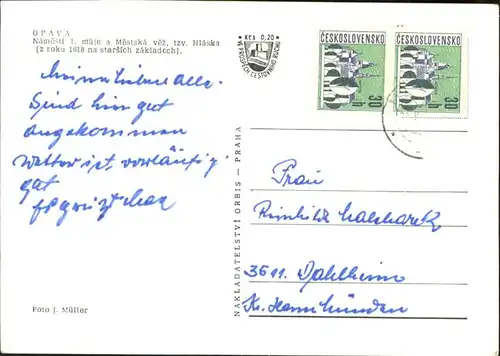 OPAVA
Náměstí 1. máje a Městská věž, tzv. Hláska
[z roku 1618 na starších základech].
Kčs 0,20
VE PROSPĚCH CESTOVNÍHO RUCHU
ČESKOSLOVENSKO
30 h
ČESKOSLOVENSKO
30 h
Meine Lieben alle.
Sind hier gut
angekommen
Wetter ist vorläufig
gut
NAKLADATELSTVÍ ORBIS — PRAHA
Frau
3611 Dahlheim
Kr. Hann Münden
Foto J. Müller